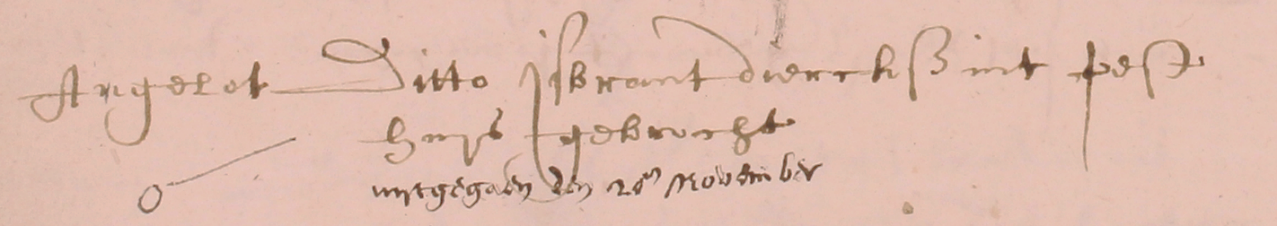 Angelot Ditto Isbrant dierckß int pest
huys gebrocht
uytgegaen den 20en November
o